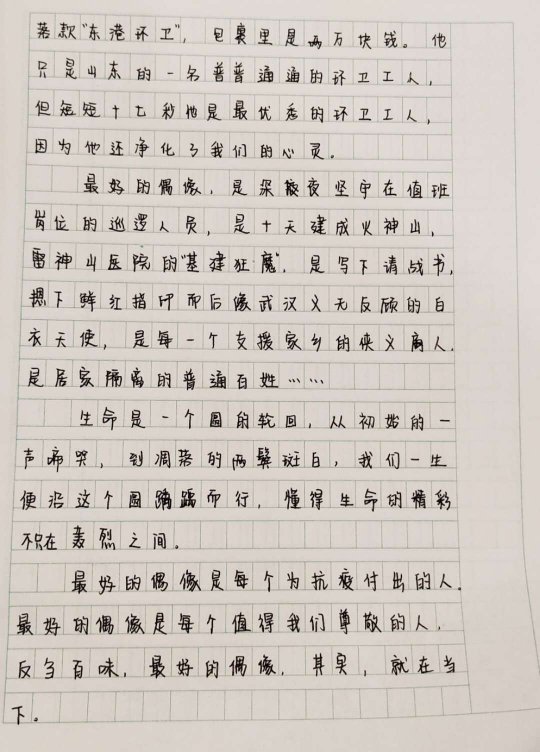 落款“东港环卫”，包裹里是两万块钱。他
只是山东的一名普普通通的环卫工人，
但短短十七秒他是最优秀的环卫工人，
因为他还净化了我们的心灵。
最好的偶像，是深夜坚守在值班
岗位的巡逻人员，是十天建成火神山，
雷神山医院的“基建狂魔”，是写下请战书，
摁下鲜红指印而后像武汉义无反顾的白
衣天使，是每一个支援家乡的侠义商人，
是居家隔离的普通百姓……
生命是一个圆的轮回，从初始的一
声啼哭，到凋落的两鬓斑白，我们一生
便沿这个圆踽踽而行，懂得生命的精彩
不只在轰烈之间。
最好的偶像是每个为抗疫付出的人。
最好的偶像是每个值得我们尊敬的人，
反刍百味，最好的偶像，其实，就在当
下。